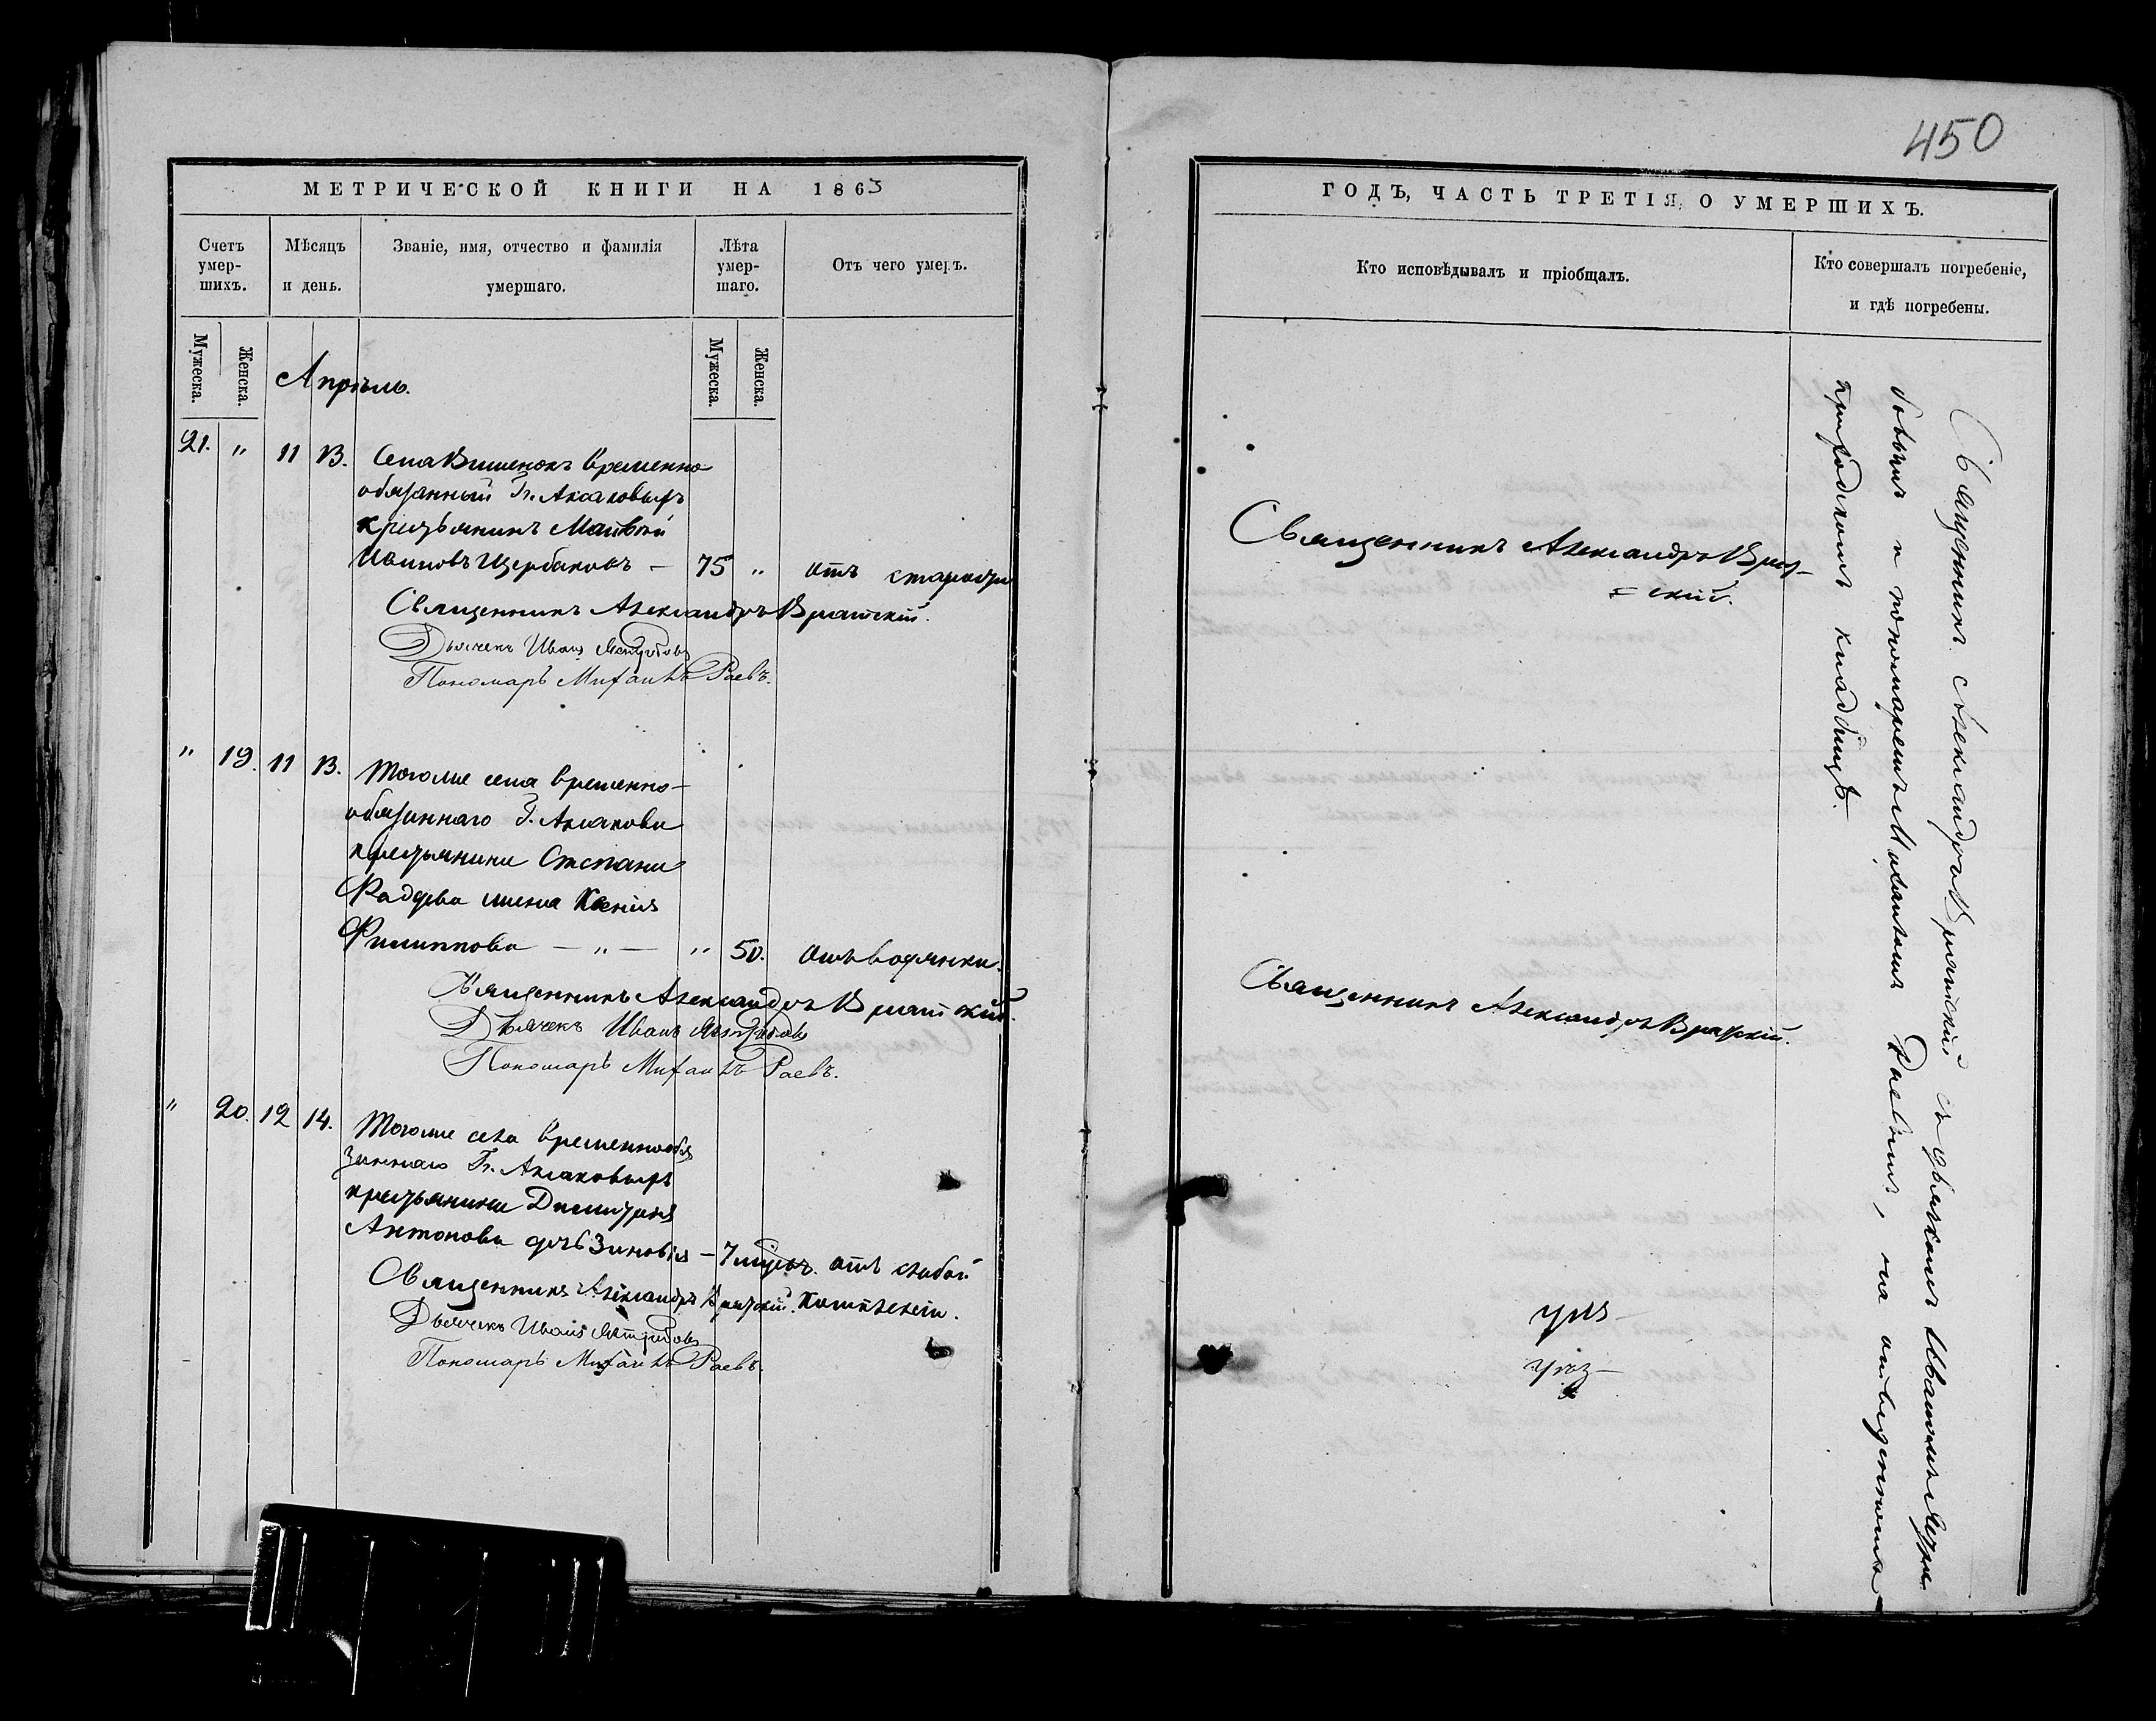 МЕТРИЧЕСКОЙ КНИГИ НА 1863
Счетъ умер-шихъ.
Мѣсяцъ и день.
Званіе, имя, отчество и фамилія умершаго.
Лѣта умер-шаго.
Отъ чего умеръ.
Мужеска.
Женска.
Мужеска.
Женска.
Апрѣль.
21. " 11 13. Села Вишенокъ временно
обязанный Гг. Аксаковыхъ
крестьянинъ Матвѣй
Ивановъ Щербаковъ — 75 " отъ старости
Священникъ Александръ Вратскій.
Дьячекъ Иванъ Ястребовъ
Пономарь Михаилъ Раевъ.
" 19. 11 13. Тогоже села временно-
обязаннаго Г. Аксакова
крестьянина Степана
Фаддѣева жена Ксенія
Филиппова — " — " 50. отъ водянки.
Священникъ Александръ Вратскій.
Дьячекъ Иванъ Ястребовъ
Пономарь Михаилъ Раевъ.
" 20. 12 14. Тогоже села временнообя
заннаго Гг. Аксаковыхъ
крестьянина Димитрія
Антонова дочь Зиновія — 7 мѣсяц. отъ слабой
Священникъ Александръ Вратскій. комплекціи.
Дьячекъ Иванъ Ястребовъ
Пономарь Михаилъ Раевъ.
450
ГОДЪ, ЧАСТЬ ТРЕТІЯ, О УМЕРШИХЪ.
Кто исповѣдывалъ и пріобщалъ.
Кто совершалъ погребеніе, и гдѣ погребены.
Священникъ Александръ Врат-
=скій.
Священникъ Александръ Вратскій.
Священникъ Александръ Вратскій, съ дьячкомъ Иваномъ Ястре-
бовымъ и пономаремъ Михаиломъ Раевымъ, на отведенномъ
приходскомъ кладбищѣ.